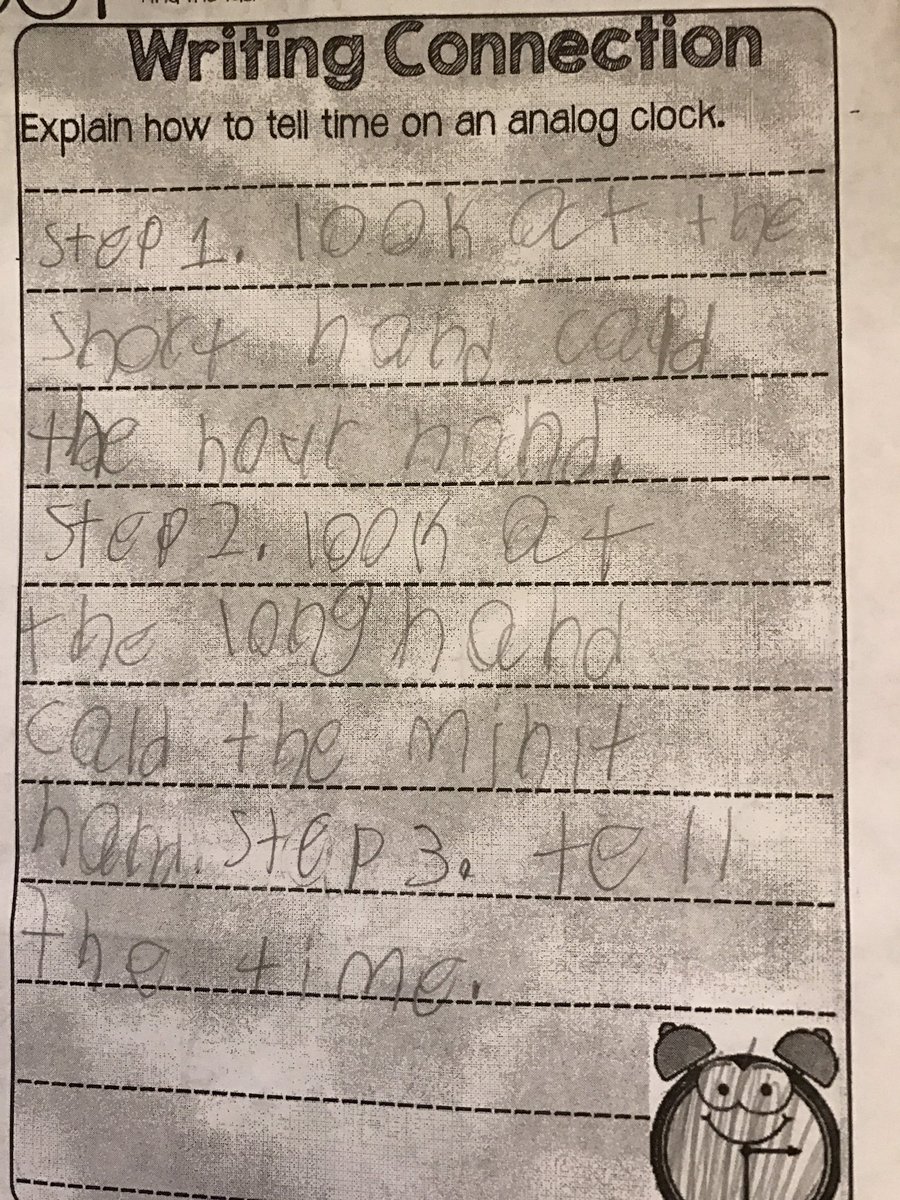 Writing Connection
Explain how to tell time on an analog clock.
step 1. look at the
short hand cald
the hour hand.
step 2. look at
the long hand
cald the minit
hand. step 3. tell
the time.